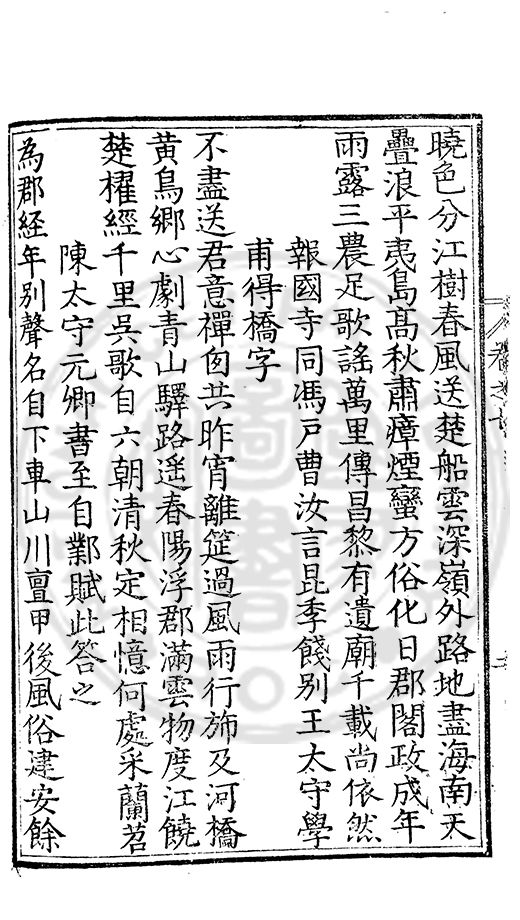 曉色分江樹春風送楚船雲深嶺外路地盡海南天
疊浪平夷島高秋肅瘴煙蠻方俗化日郡閣政成年
雨露三農足歌謠萬里傳昌黎有遺廟千載尚依然
報國寺同馮戶曹汝言昆季餞別王太守學
甫得橋字
不盡送君意禪囱共昨宵離筵過風雨行斾及河橋
黄鳥鄉心劇青山驛路遥春陽浮郡滿雲物度江饒
楚櫂經千里吳歌自六朝清秋定相憶何處采蘭苕
陳太守元卿書至自鄴賦此答之
為郡経年別聲名自下車山川亶甲後風俗建安餘